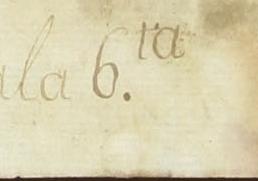 ala 6.ta